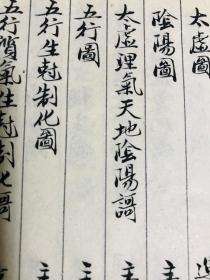 太虛圖
陰陽圖
太虛理氣天地陰陽謌
五行圖
五行生尅制化圖
五行質氣生尅制化謌